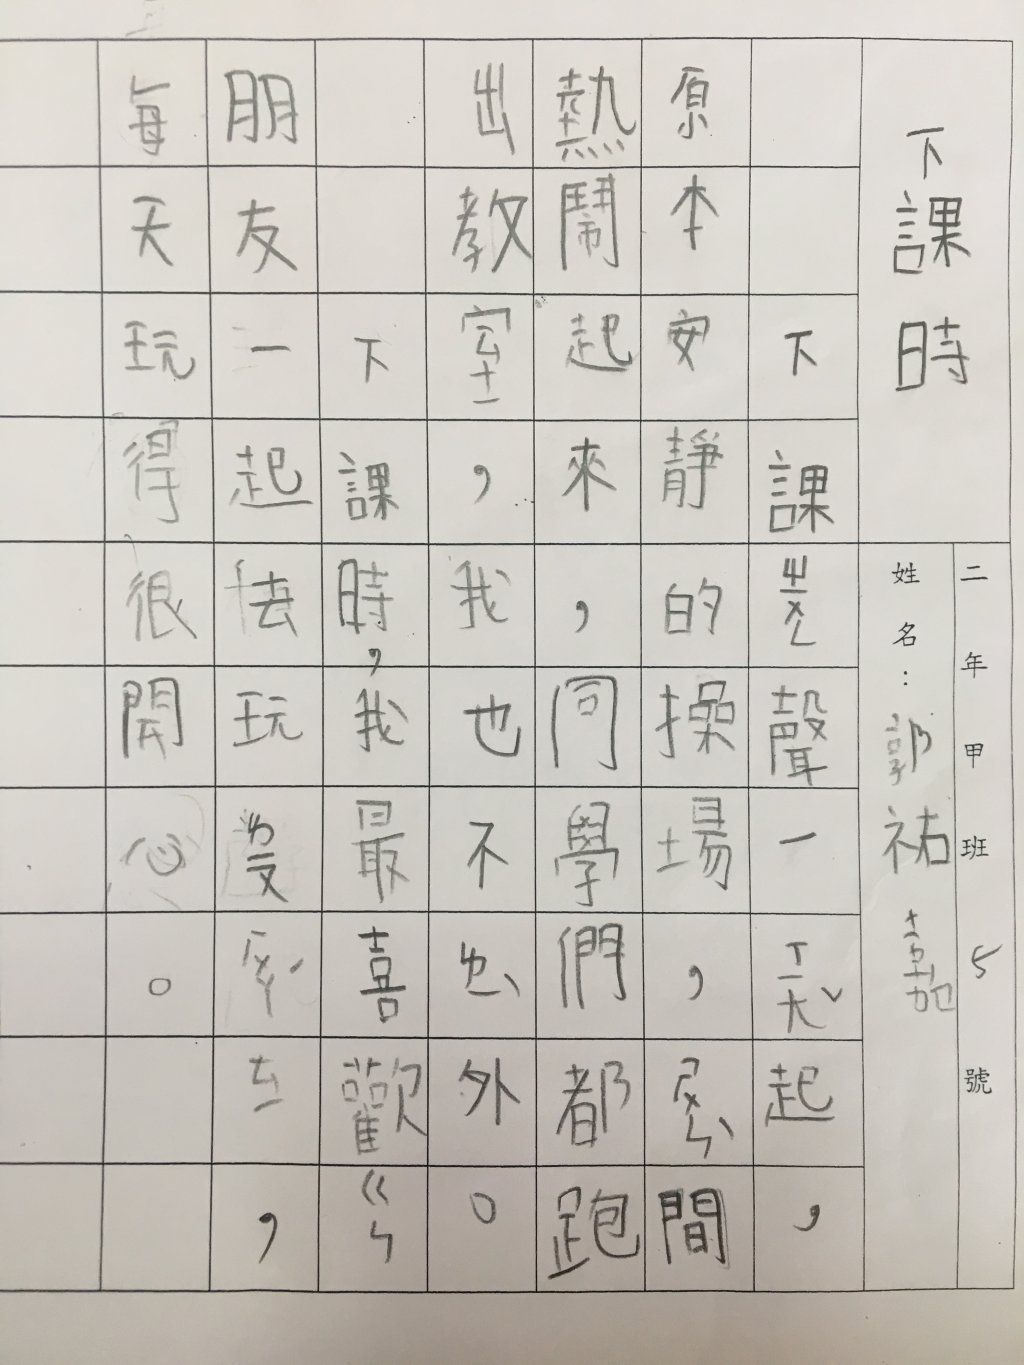 下課時
二年甲班 5 號
姓名:郭祐嘉
下課ㄓㄨㄥ聲一ㄒㄧㄤˇ起,
原本安靜的操場,ㄕㄨㄣˋ間
熱鬧起來,同學們都跑
出教室,我也不ㄌㄧˋ外。
下課時,我最喜歡ㄍㄣ
朋友一起去玩ㄌㄧㄡㄏㄨㄚˊㄊㄧ,
每天玩得很開心。